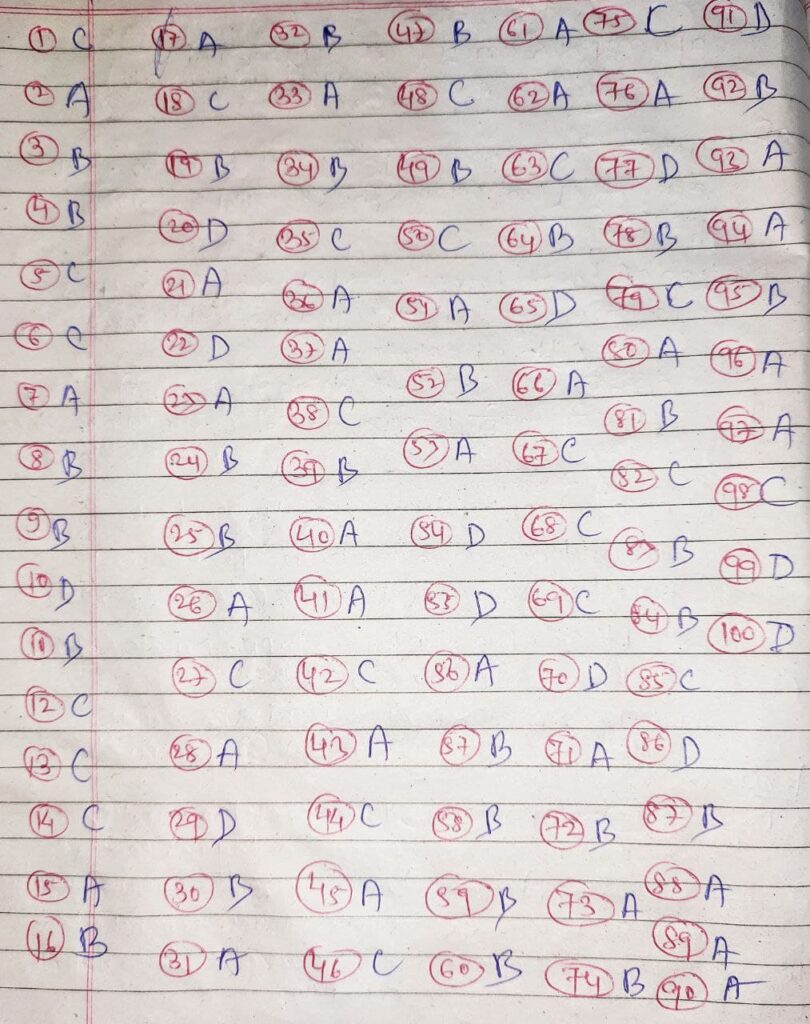 1 C
2 A
3 B
4 B
5 C
6 C
7 A
8 B
9 B
10 D
11 B
12 C
13 C
14 C
15 A
16 B
17 A
18 C
19 B
20 D
21 A
22 D
23 A
24 B
25 B
26 A
27 C
28 A
29 D
30 B
31 A
32 B
33 A
34 B
35 C
36 A
37 A
38 C
39 B
40 A
41 A
42 C
43 A
44 C
45 A
46 C
47 B
48 C
49 B
50 C
51 A
52 B
53 A
54 D
55 D
56 A
57 B
58 B
59 B
60 B
61 A
62 A
63 C
64 B
65 D
66 A
67 C
68 C
69 C
70 D
71 A
72 B
73 A
74 B
75 C
76 A
77 D
78 B
79 C
80 A
81 B
82 C
83 B
84 B
85 C
86 D
87 B
88 A
89 A
90 A
91 D
92 B
93 A
94 A
95 B
96 A
97 A
98 C
99 D
100 D